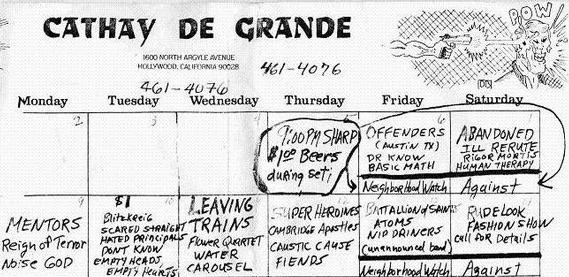 CATHAY DE GRANDE
POW
1600 NORTH ARGYLE AVENUE
HOLLYWOOD, CALIFORNIA 90028
461-4076
461-4076
Monday Tuesday Wednesday Thursday Friday Saturday
2
3
6
9:00 PM SHARP
$1.00 Beers
during set;
OFFENDERS
(AUSTIN TX)
DR KNOW
BASIC MATH
Neighborhood Watch
ABANDONED
ILL REPUTE
RIGOR MORTIS
HUMAN THERAPY
Against
9
MENTORS
Reign of Terror
Noise GOD
$1
Blitzkreig
SCARED STRAIGHT
HATED PRINCIPALS
DON'T KNOW
EMPTY HEADS
EMPTY Hearts
LEAVING
TRAINS
Flower Quartet
WATER
CAROUSEL
SUPER HEROINES
CAMBRIDGE Apostles
CAUSTIC CAUSE
FIENDS
BATTALION of SAINTS
ATOMS
NIP DRINERS
(unannounced band)
Neighborhood Watch
RUDE LOOK
FASHION SHOW
Call for Details
Against